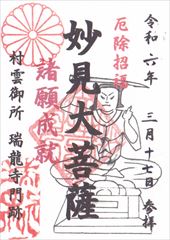 令和六年 三月十七日 参拝
厄除招福
妙見大菩薩
諸願成就
村雲御所 瑞龍寺門跡